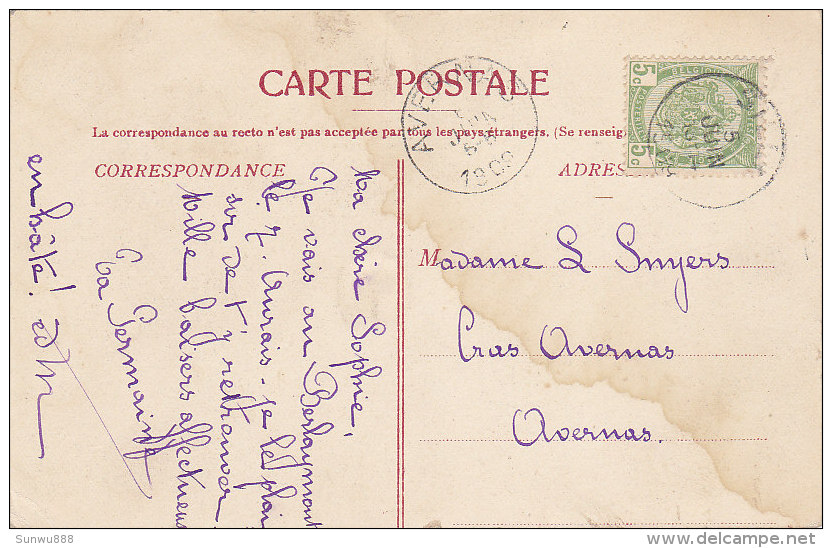 CARTE POSTALE
La correspondance au recto n'est pas acceptée par tous les pays étrangers. (Se renseign
CORRESPONDANCE
ADRES
BELGIQUE
5c 5c
AVER
JUIN
1909
5
JUIN
Ma chère Sophie,
Je vais au Berlaymont
le 7. Aurais-je le plai
sir de t'y retrouver
Mille baisers affectueux
Ta Germaine
en hâte!
Madame L Smyers
Cras Avernas
Avernas.
Sunwu888
delcampe.net